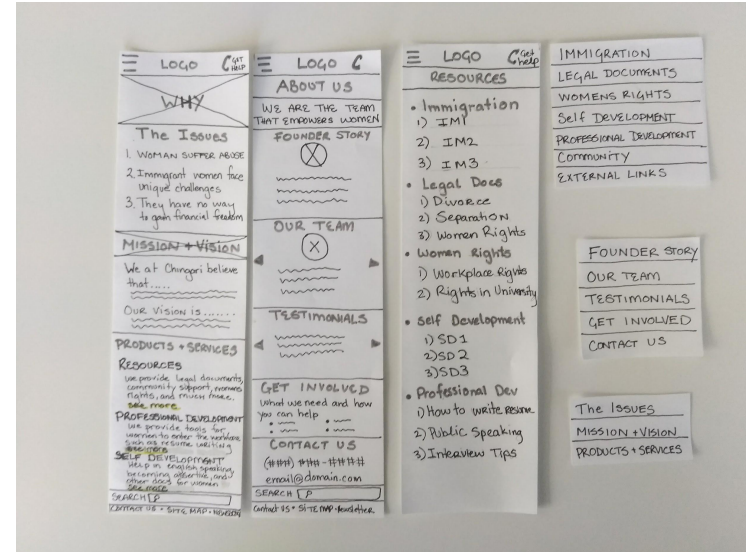 LOGO
GET HELP
WHY
The Issues
1. WOMAN SUFFER ABUSE
2. Immigrant women face
unique challenges
3. They have no way
to gain financial freedom
MISSION + VISION
We at Chingari believe
that.....
OUR VISION is.......
PRODUCTS + SERVICES
RESOURCES
we provide legal documents,
community support, womens
rights, and much more.
see more
PROFESSIONAL DEVELOPMENT
we provide tools for
women to enter the workplace
such as resume writing
see more
SELF DEVELOPMENT
Help in english speaking,
becoming assertive, and
other docs for women
see more
SEARCH
CONTACT US • SITE MAP •
LOGO
ABOUT US
WE ARE THE TEAM
THAT EMPOWERS WOMEN
FOUNDER STORY
OUR TEAM
TESTIMONIALS
GET INVOLVED
What we need and how
you can help
CONTACT US
(###) ### - ####
email@domain.com
SEARCH
Contact US • SITEMAP • Newsletter
LOGO
Get help
RESOURCES
• Immigration
1) IM1
2) IM2
3) IM3
• Legal Docs
1) Divorce
2) Separation
3) Women Rights
• Women Rights
1) Workplace Rights
2) Rights in University
• Self Development
1) SD1
2) SD2
3) SD3
• Professional Dev
1) How to write resume
2) Public Speaking
3) Interview Tips
IMMIGRATION
LEGAL DOCUMENTS
WOMENS RIGHTS
Self DEVELOPMENT
PROFESSIONAL DEVELOPMENT
Community
EXTERNAL LINKS
FOUNDER STORY
OUR TEAM
TESTIMONIALS
GET INVOLVED
CONTACT US
The Issues
MISSION + VISION
PRODUCTS + SERVICES